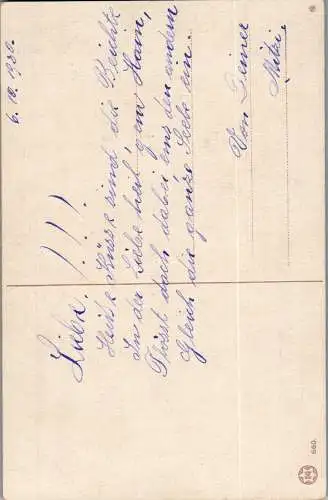 6. 10. 1930.
Liebe. !!!
Heisse Küsse sind die Beichte
In der Liebe heil'gem Hain,
Flösst doch dabei eins dem andern
Gleich die ganze Seele ein...
Von Deiner
Mitzi.
660.